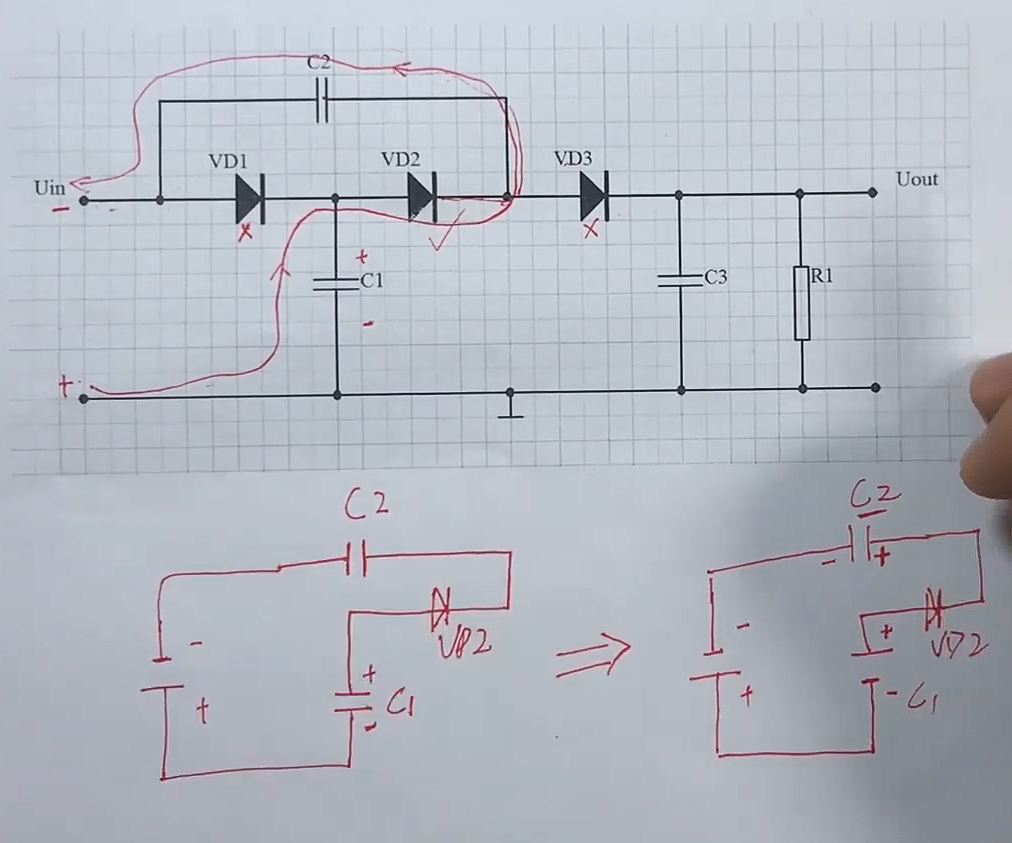 C2
VD1 VD2 VD3
Uin Uout
-
x x
+
C1 C3 R1
-
+
C2 C2
- +
- VD2 - + VD2
+ + C1 + - C1
-